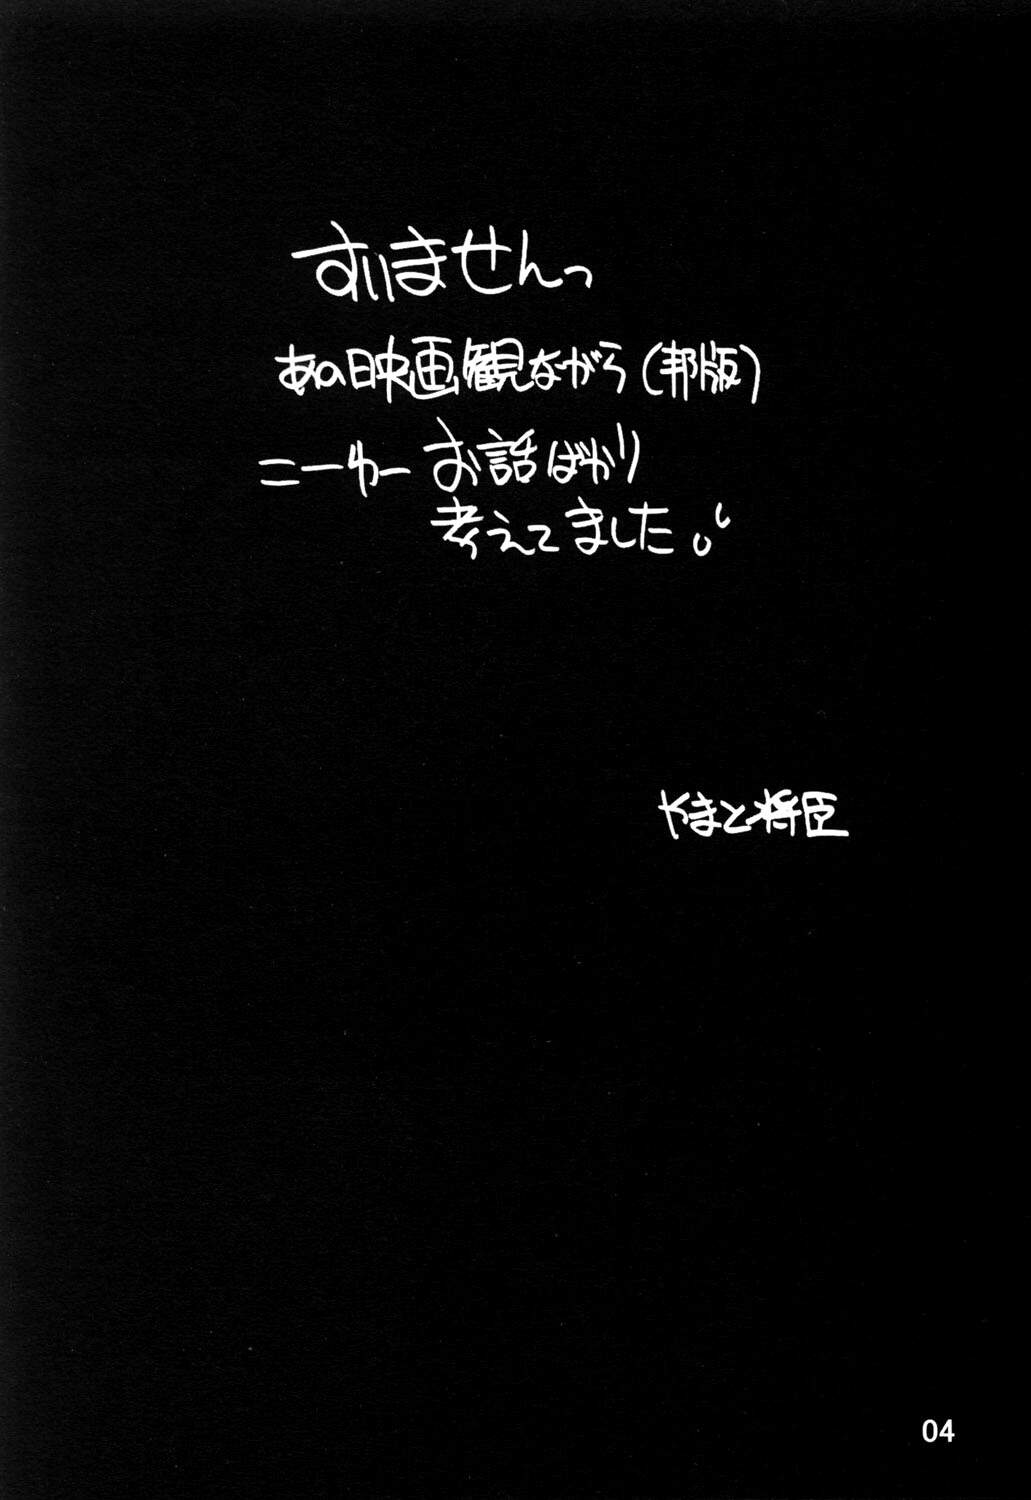 すいませんっ
あの映画観ながら(邦版)
こーゆーお話ばかり
考えてました。
やまと将臣
04